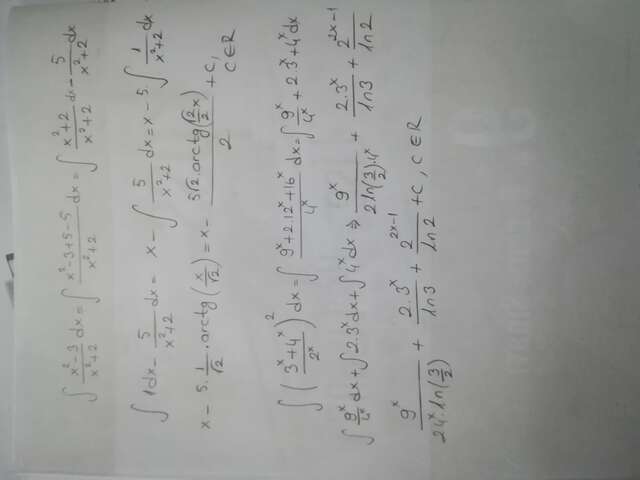 ∫ (x²-3)/(x²+2) dx = ∫ (x²-3+5-5)/(x²+2) dx = ∫ (x²+2)/(x²+2) dx - 5/(x²+2) dx
∫ 1dx - 5/(x²+2) dx = x - ∫ 5/(x²+2) dx = x - 5·∫ 1/(x²+2) dx
x - 5·1/√2·arctg(x/√2) = x - (5√2·arctg(√2x/2))/2 + C, C∈R
∫ ((3^x+4^x)/2^x)² dx = ∫ (9^x+2·12^x+16^x)/4^x dx = ∫ 9^x/4^x + 2·3^x + 4^x dx
∫ 9^x/4^x dx + ∫ 2·3^x dx + ∫ 4^x dx ⇒ 9^x/(2ln(3/2)·4^x) + 2·3^x/ln3 + 2^(2x-1)/ln2
9^x/(24^x·ln(3/2)) + 2·3^x/ln3 + 2^(2x-1)/ln2 + C, C∈R